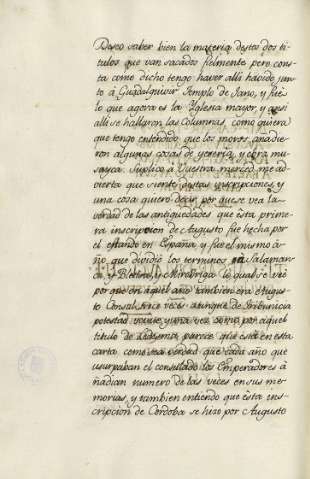 Deseo saber bien la materia destos dos ti-
tulos que van sacados fielmente pero cons-
ta como dicho tengo haver alli habido jun-
to â Guadalquivir Templo de Jano, y fue
lo que agora es la Yglesia mayor, y ansi
alli se hallaron las Columnas, como quiera
que tengo entendido que los moros añadie-
ron algunas cosas de yeseria, y obra mu-
sayca. Suplico â Vuestra merced me ad-
vierta que siente destas inscripciones, y
una cosa quiero decir porque se vea la
verdad de las antiguedades que esta prime-
ra inscripcion de Augusto fue hecha por
el estando en España y fue el mismo a-
ño que dividiô los terminos Salaman-
ca, y Bletisa, y Mirobriga lo qual se vé
por que en aquel año tambien era Augusto
Consul trece veces aunque de Tribunicia
potestad veinte y una vez como por aquel
titulo de Ledesma parece que está en esta
carta como sea verdad que cada año que
usurpaban el consulado los Emperadores â
ñadian numero de las veces en sus me-
morias, y tambien entiendo que esta ins-
cripcion de Cordoba se hizo por Augusto